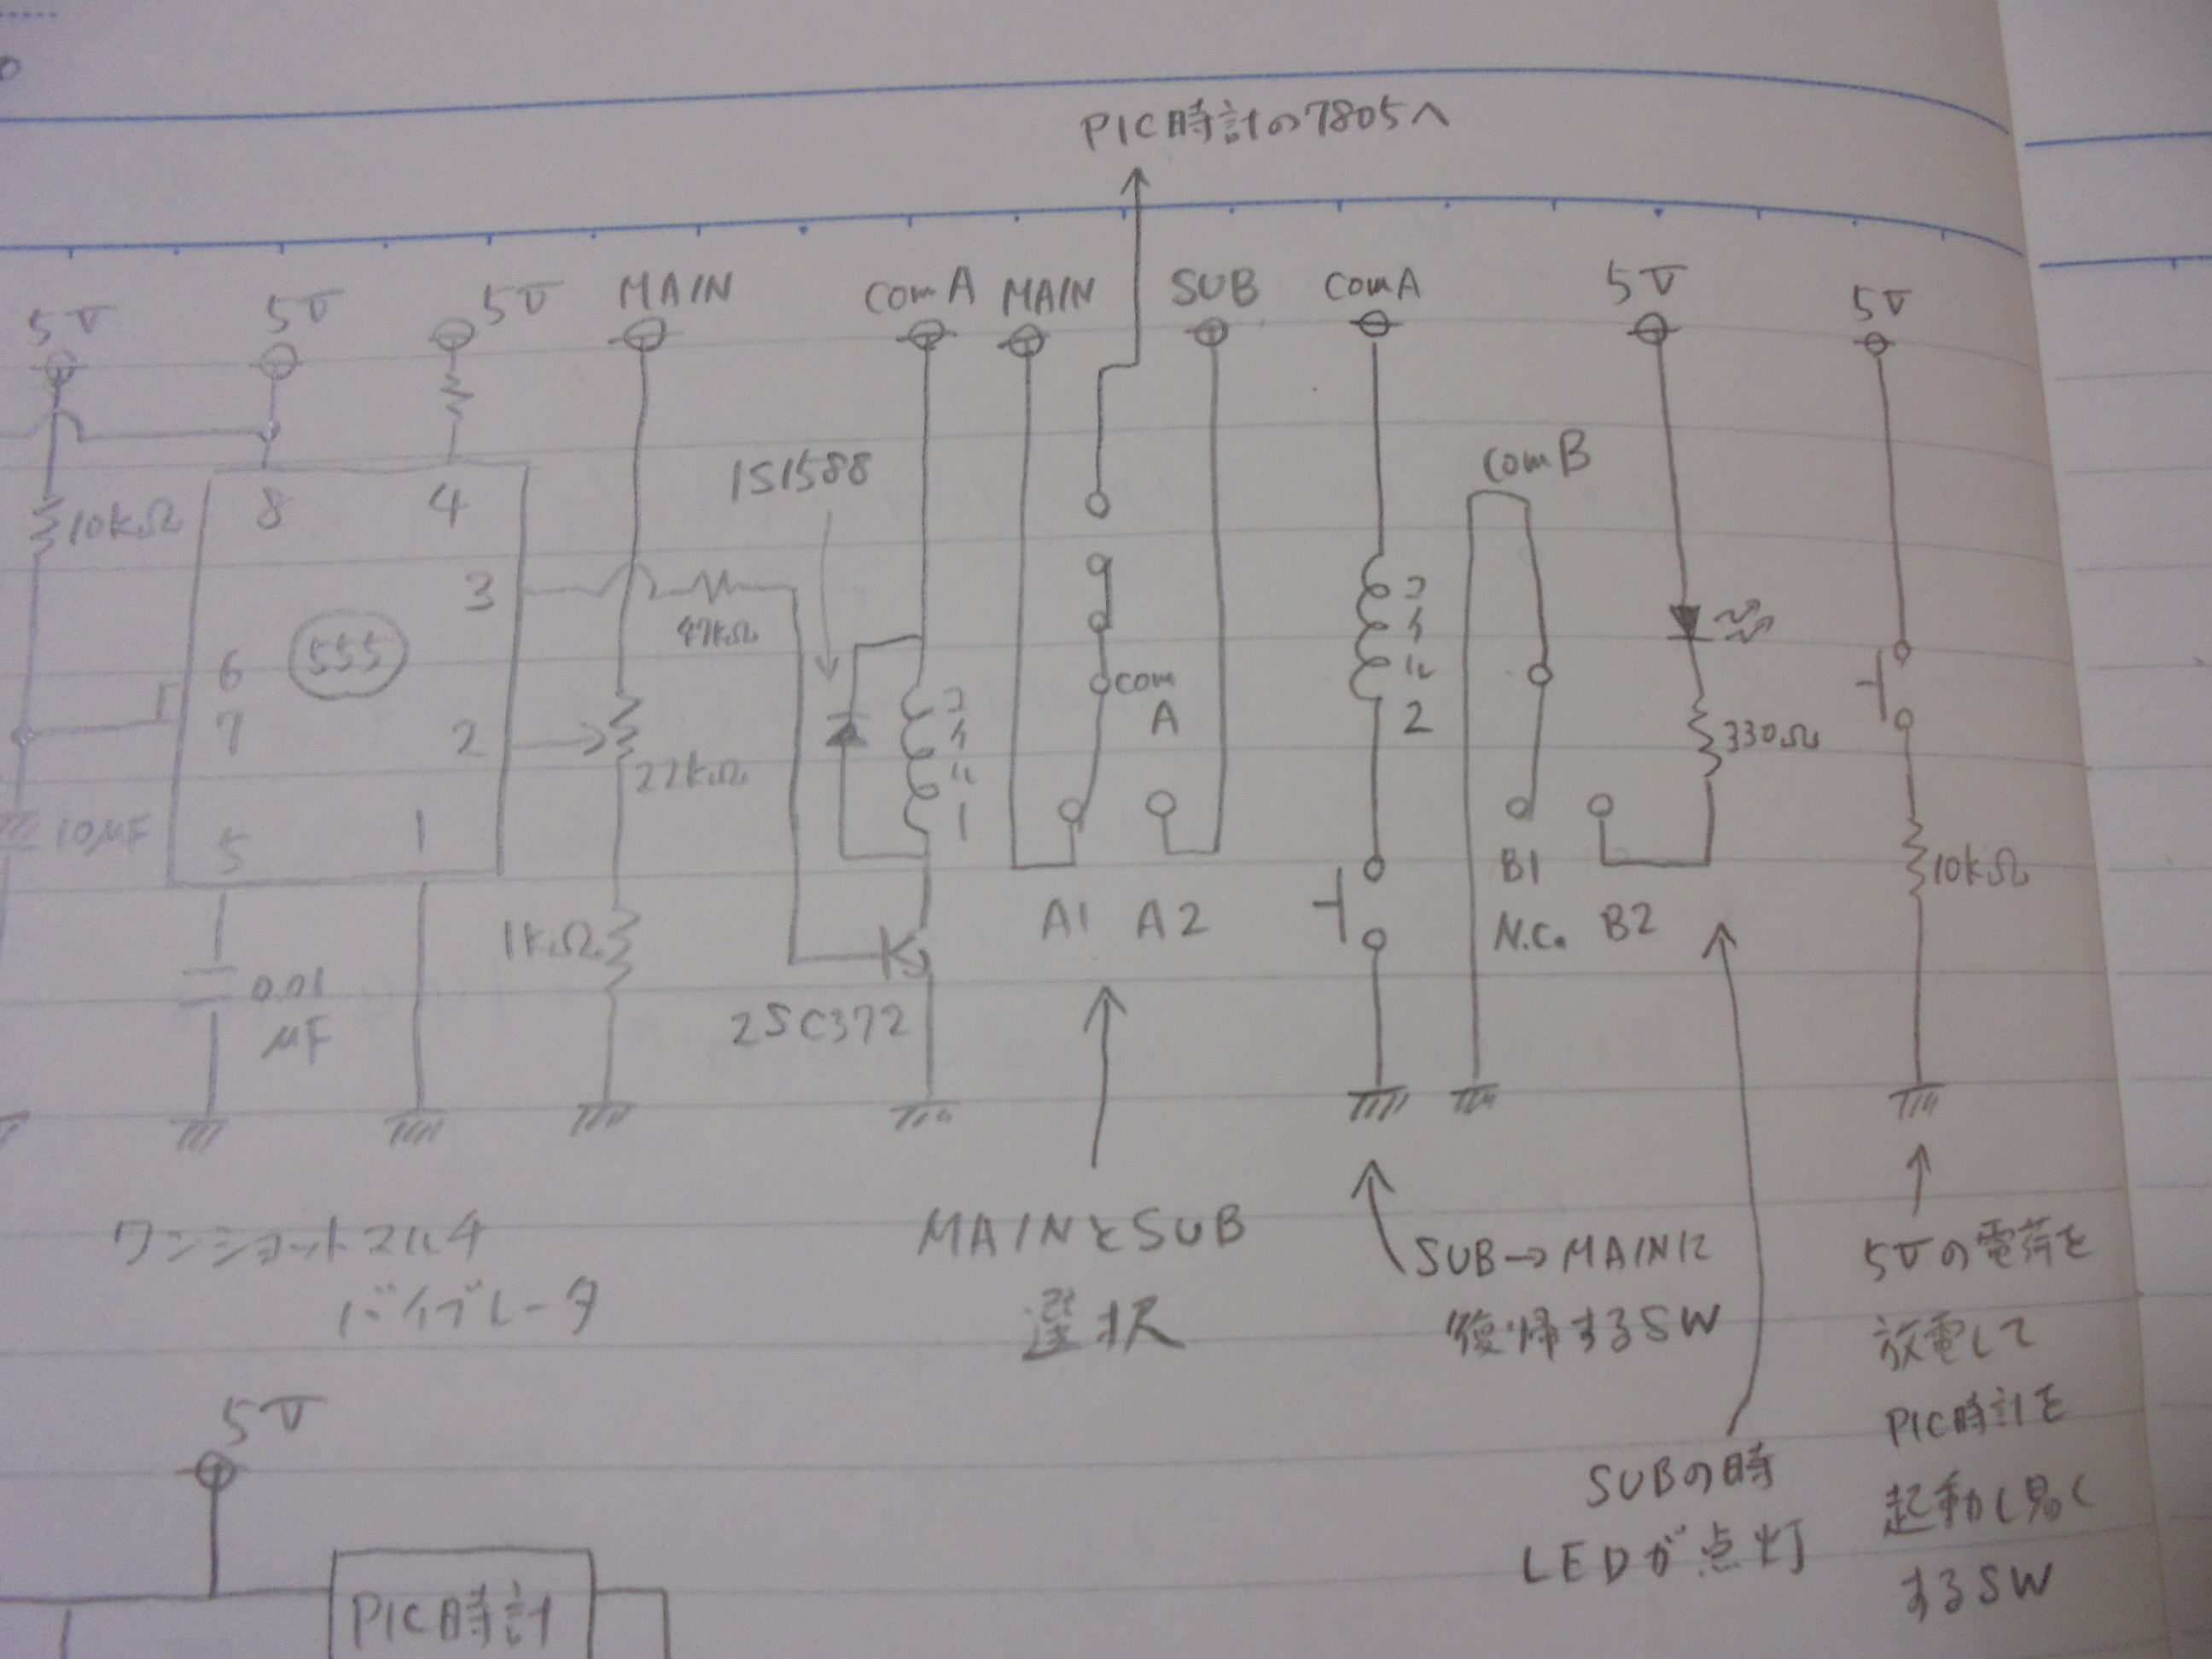 PIC時計の7805へ
5V
5V
5V
MAIN
comA
MAIN
SUB
comA
5V
5V
1S1588
comB
10kΩ
8
4
3
47kΩ
555
6
7
2
22kΩ
コイル1
com
A
コイル2
330Ω
10μF
5
1
1kΩ
A1
A2
B1
N.C.
B2
10kΩ
0.01
μF
2SC372
ワンショットマルチ
バイブレータ
MAINとSUB
選択
SUB→MAINに
復帰するSW
SUBの時
LEDが点灯
5Vの電荷を
放電して
PIC時計を
起動し易く
するSW
5V
PIC時計